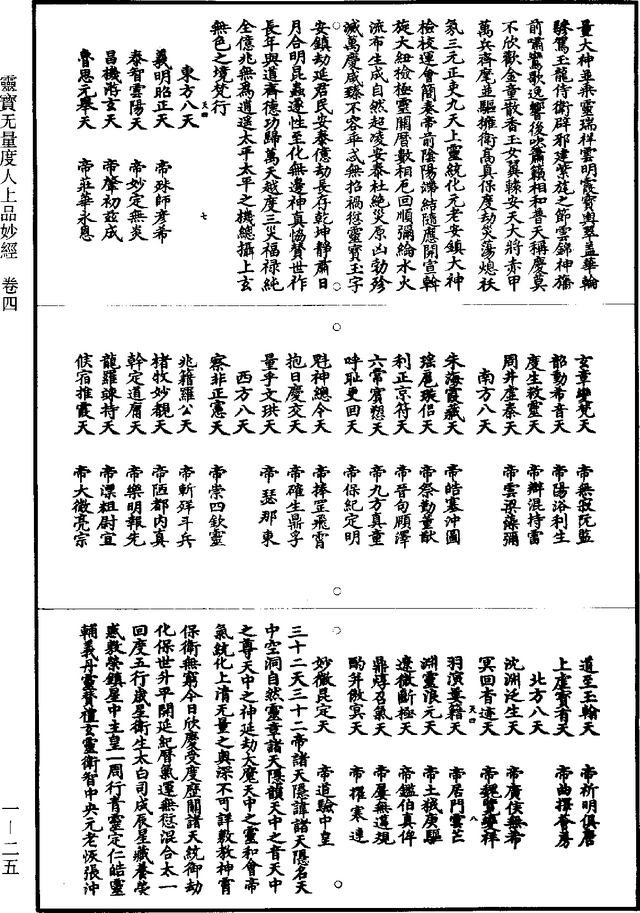 量大神並乘靈瑞祥雲明霞寶輿翠蓋華輪
驂駕玉龍侍衛辟邪建紫旌之節雲錦神旛
前嘯鸞歌逸響後吹簫籟相和普天稱慶莫
不欣歡金童散香玉女翼轅安天大將赤甲
萬兵齊麾並驅擁衛高真保度劫災蕩熄祅
氛三元正吏九天上靈統化元老安鎮大神
檢校運會簡奏帝前陰陽滯結隨應開宣斡
旋大紐檢極靈關曆數相戹回順彌綸水火
流布生成自然超凌安泰杜絕災原凶勃殄
滅萬慶咸臻不容乖忒無招禍愆靈寶玉字
安鎮劫延君民安泰億劫長存乾坤靜肅日
月合明昆蟲遂性至化無邊神真協贊世祚
長年與道齊德功歸萬天越度三災福祿純
全億兆無為逍遙太平太平之機總攝上玄
無色之境梵行
東方八天
義明昭正天 帝殊師孝希
泰智雲陽天 帝妙定無炎
昌機將玄天 帝肇初茲成
魯思元舉天 帝莊華永息
玄章變梵天 帝無寂阮監
韶勤希音天 帝陽浴利生
度生救靈天 帝辯混持雷
周井虛泰天 帝雲梁蔭彌
南方八天
朱海霞藏天 帝皓塞沖圖
瑤扈璞侶天 帝祭勤量猷
利正京符天 帝晉句願澤
六常寶想天 帝九方真童
呼恥更回天 帝保紀定明
魁神總令天 帝捧罡飛霄
抱日慶交天 帝確生鼎孚
量乎文珙天 帝瑟那東
西方八天
察非正憲天 帝崇四欽靈
兆籍羅公天 帝斬殍斗兵
楮牧妙觀天 帝陋都內真
幹定道眉天 帝樂明報先
龍羅竦持天 帝漂粗尉宣
候宿推震天 帝大徵亮宗
道至玉翰天 帝祈明俱唐
上虛寶有天 帝曲擇香房
北方八天
沈淵泛生天 帝廣侯無希
冥回香速天 帝魏覽變祥
羽演蔓籍天 帝居門雲芒
淵靈浪元天 帝土絨庚驅
遼徵斷極天 帝鑑伯真侔
鼎焞召氣天 帝屢無邁規
酌昇敵冥天 帝擇寒連
妙徵毘定天 帝道驗中皇
三十二天三十二帝諸天隱諱諸天隱名天
中空洞自然靈章諸天隱韻天中之音天中
之尊天中之神延劫大魔天中之靈和會帝
氣統化上清无量之奧深不可詳敷教神霄
保衛無窮今日欣慶受度歷關諸天統御劫
化保世升平開延紀曆氣運無愆混合太一
回度五行歲星衛生太白司戌辰星藏養熒
惑敷榮鎮星中主皇一周行青靈定仁皓靈
輔義丹靈賛禮玄靈衛智中央元老恢張沖
靈寶无量度人上品妙經 卷四
一—二五